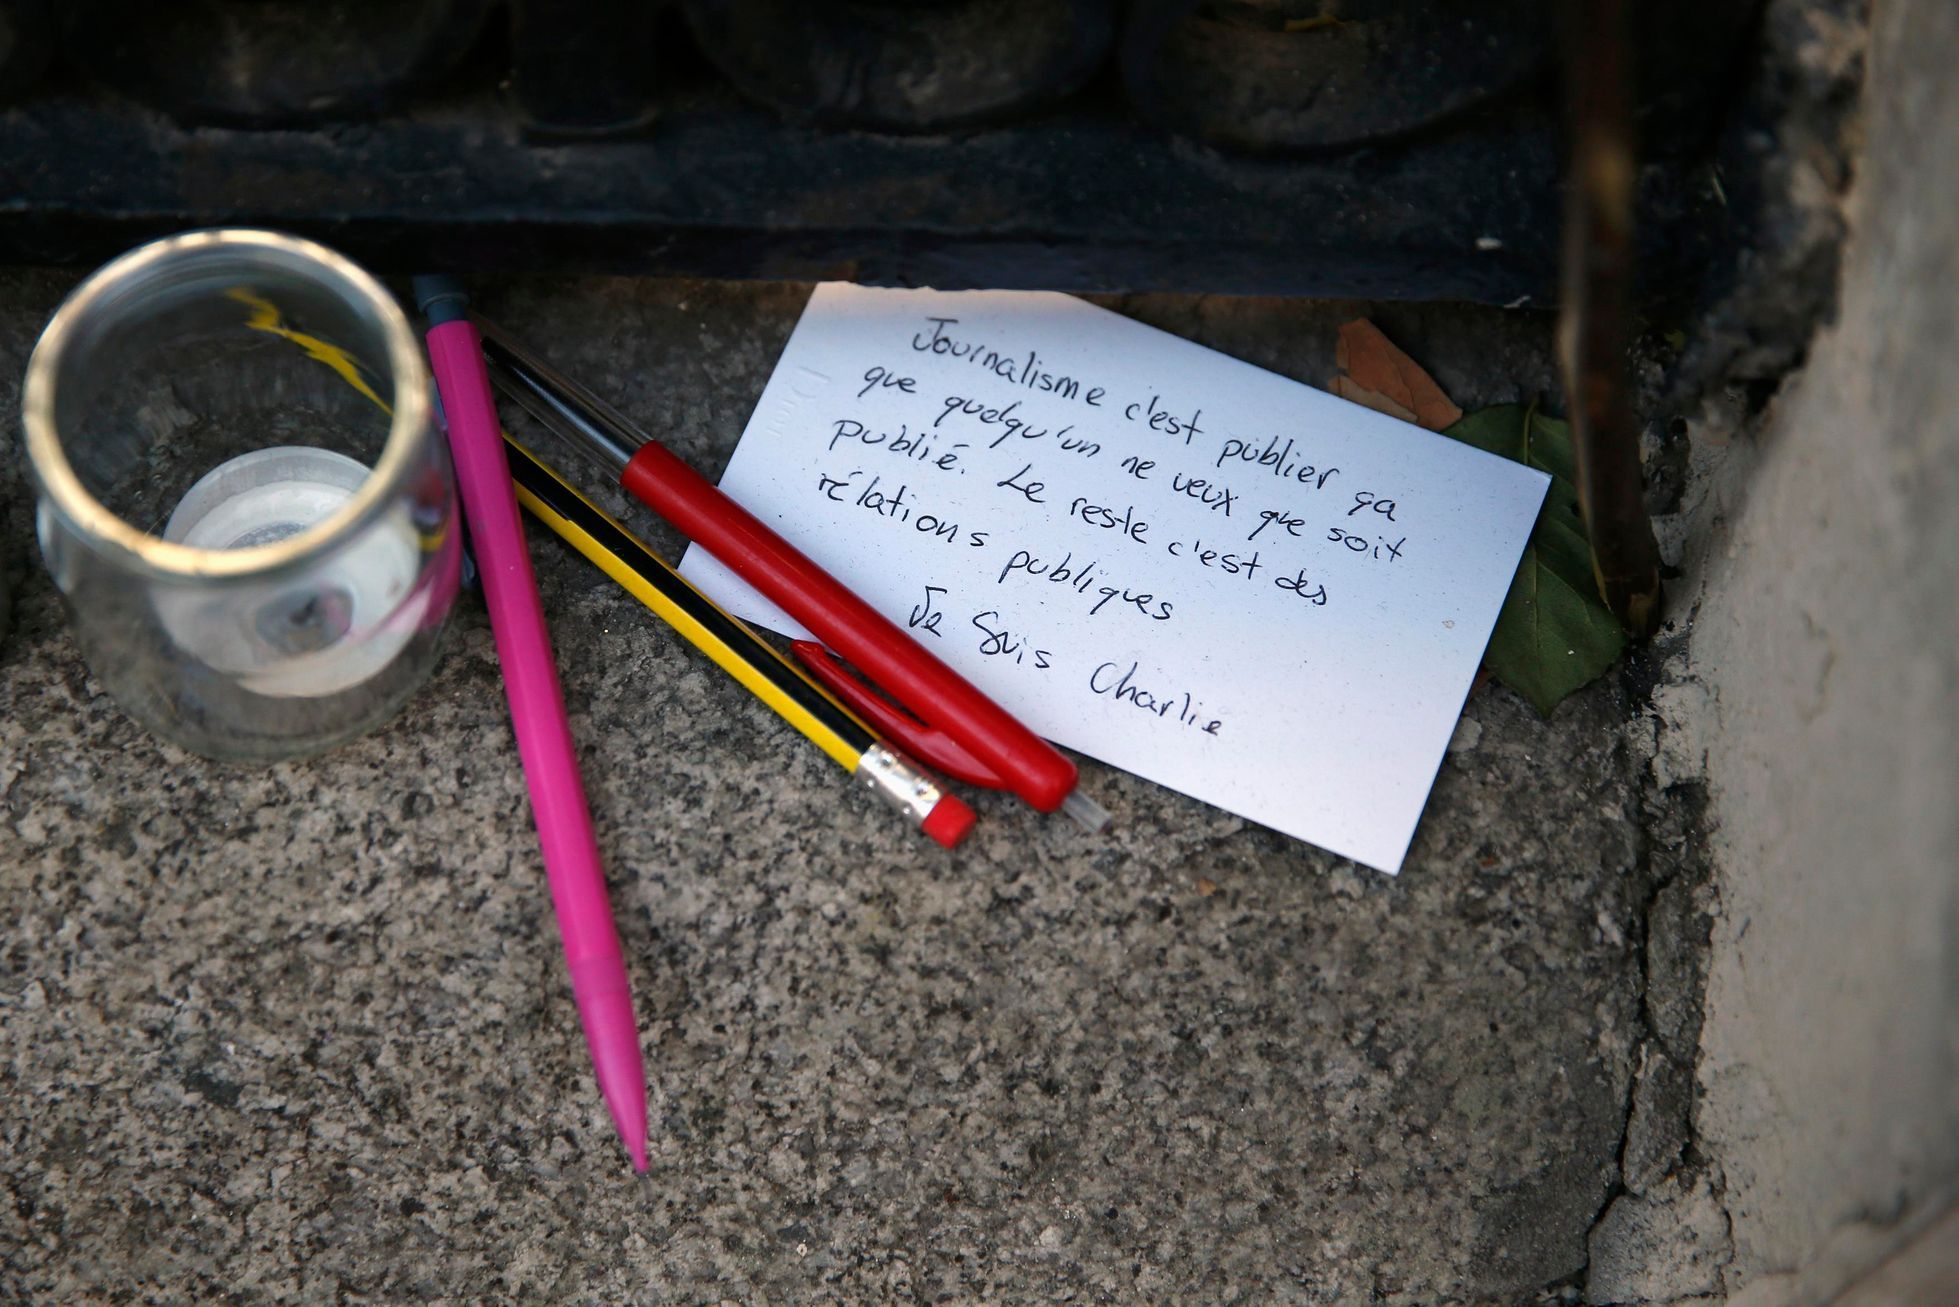 Journalisme c'est publier ça
que quelqu'un ne veux que soit
publié. Le reste c'est des
rélations publiques
Je Suis Charlie